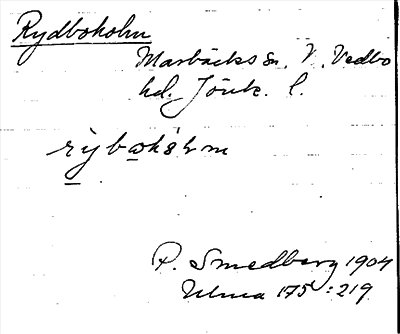 Rydboholm
Marbäcks sn. N. Vedbo
hd. Jönk. l.
P. Smedberg 1904
Ulma 175:219